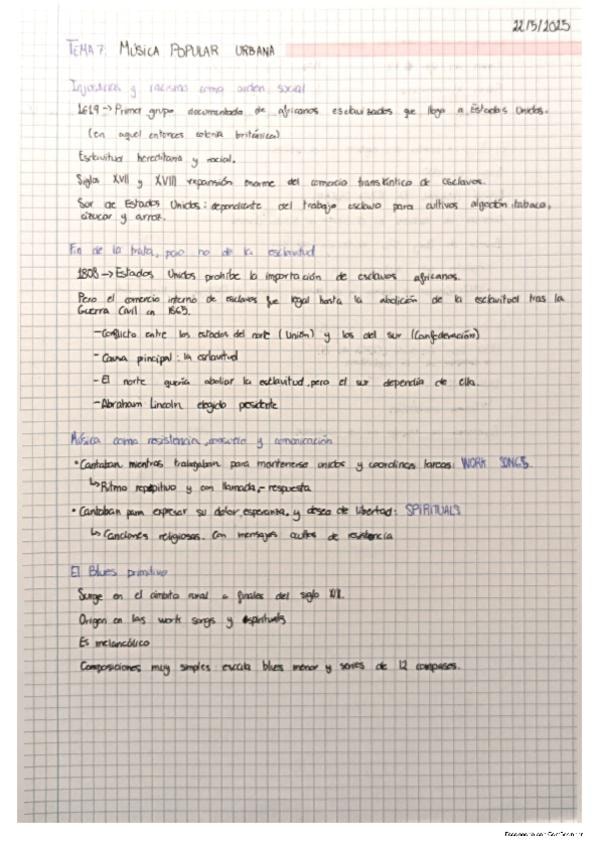 22/5/2025
TEMA 7: MÚSICA POPULAR URBANA
Injusticia y racismo como orden social
1619 → Primer grupo documentado de africanos esclavizados que llega a Estados Unidos.
(en aquel entonces colonia británica)
Esclavitud hereditaria y racial.
Siglos XVII y XVIII expansión enorme del comercio transatlántico de esclavos.
Sur de Estados Unidos: dependiente del trabajo esclavo para cultivos algodón, tabaco,
azúcar y arroz.
Fin de la trata, pero no de la esclavitud
1808 → Estados Unidos prohíbe la importación de esclavos africanos.
Pero el comercio interno de esclavos fue legal hasta la abolición de la esclavitud tras la
Guerra Civil en 1865.
- Conflicto entre los estados del norte (Unión) y los del sur (Confederación)
- Causa principal: la esclavitud
- El norte quería abolir la esclavitud, pero el sur dependía de ella.
- Abraham Lincoln elegido presidente
Música como resistencia, y comunicación
• Cantaban mientras trabajaban para mantenerse unidos y coordinar tareas: WORK SONGS
↳ Ritmo repetitivo y con llamada - respuesta
• Cantaban para expresar su dolor, esperanza, y deseo de libertad: SPIRITUALS
↳ Canciones religiosas. Con mensajes ocultos de resistencia
El Blues primitivo
Surge en el ámbito rural a finales del siglo
Origen en las work songs y espirituals
Es melancólico
Composiciones muy simples: escala blues menor y series de 12 compases.